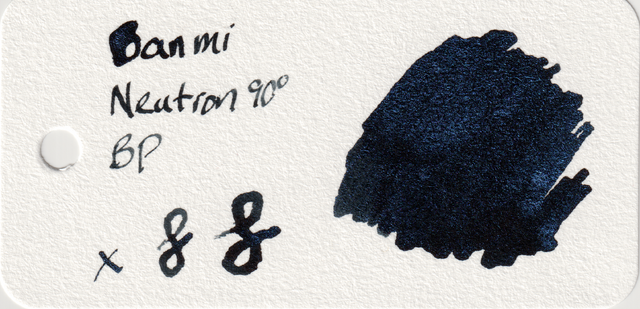 Banmi
Neutron 90°
BP
x